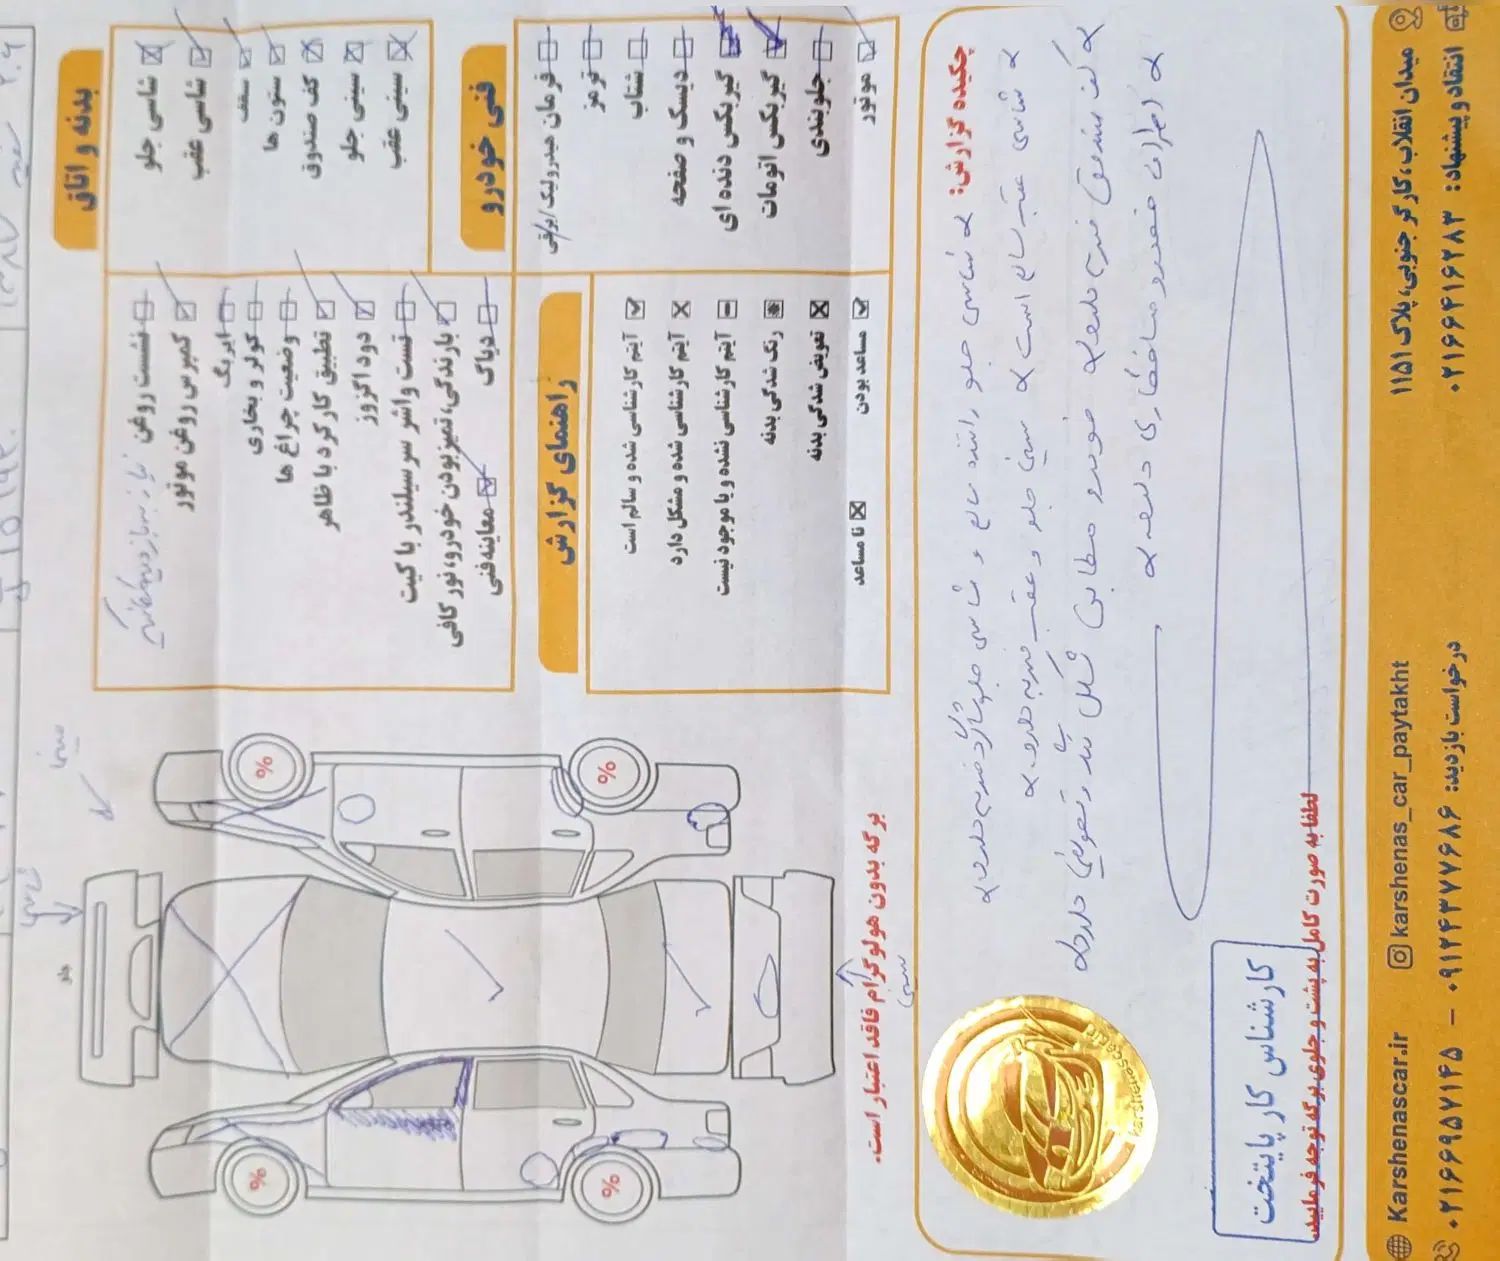 بدنه و اتاق
شاسی جلو
شاسی عقب
سقف
ستون ها
کف صندوق
سینی جلو
سینی عقب
فنی خودرو
فرمان هیدرولیک/برقی
ترمز
شتاب
دیسک و صفحه
گیربکس دنده ای
گیربکس اتومات
جلوبندی
موتور
نشست روغن
کمپرس روغن موتور
ایربگ
کولر و بخاری
وضعیت چراغ ها
تطبیق کارکرد با ظاهر
دود اگزوز
تست واشر سرسیلندر با کیت
بارندگی، تمیز بودن خودرو، نور کافی
دیاگ
معاینه فنی
راهنمای گزارش
آیتم کارشناسی شده و سالم است
آیتم کارشناسی شده و مشکل دارد
آیتم کارشناسی نشده و یا موجود نیست
رنگ شدگی بدنه
تعویض شدگی بدنه
مساعد بودن
نا مساعد
سینی
شاسی
جلو
%
%
%
%
سینی
برگه بدون هولوگرام فاقد اعتبار است.
چکیده گزارش:
شاسی جلو راننده سالم و شاسی جلو شاگرد ضربه دارد
شاسی عقب سالم است سینی جلو و عقب ضربه دارد
کف صندوق ضربه دارد خودرو مطابق شکل رنگ و تعویض دارد
karshenascar
کارشناس کار پایتخت
لطفا به صورت کامل به پشت و جلوی برگه توجه فرمایید.
میدان انقلاب، کارگر جنوبی، پلاک ۱۱۵۱
karshenas_car_paytakht
Karshenascar.ir
انتقاد و پیشنهاد: ۰۲۱۶۶۴۱۶۲۸۳
درخواست بازدید: ۰۹۱۲۴۳۷۷۶۸۶ - ۰۲۱۶۶۹۵۷۱۴۵